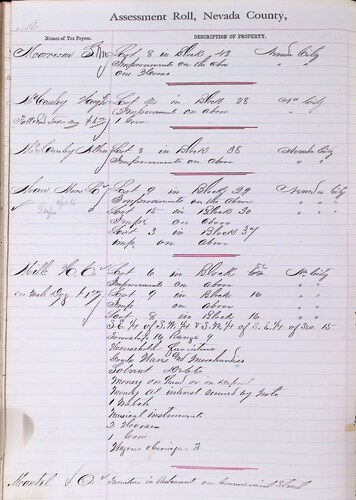 Assessment Roll, Nevada County,
Names of Tax Payers. DESCRIPTION OF PROPERTY.
Morrison Lot 8 in Block 43 Nevada City
Improvements on the above " "
One Horse
McCauley Hugh Lot 12 in Block 28 City
Improvements on above " "
1 Cow
McCauley Lot 8 in Block 38 Nevada City
Improvements on above " "
Lot 9 in Block 29 Nevada City
Improvements on the above " "
Lot 15 in Block 30 " "
Impr on above
Lot 3 in Block 37
Imp. on above
Mill Lot 6 in Block City
Improvements on above " "
Lot 9 in Block 16 " "
Imp on above
Lot 8 in Block 16 " "
S.E.¼ of S.W.¼ & S.W.¼ of S.E.¼ of Sec. 15
Township 16 Range 9
Household Furniture
Goods Wares and Merchandise
Solvent Debts
Money on hand or on deposit
Money at interest secured by note
1 Watch
Musical instruments
2 Horses
1 Cow
Wagons & Carriages 3
Furniture in Restaurant on Commercial Street